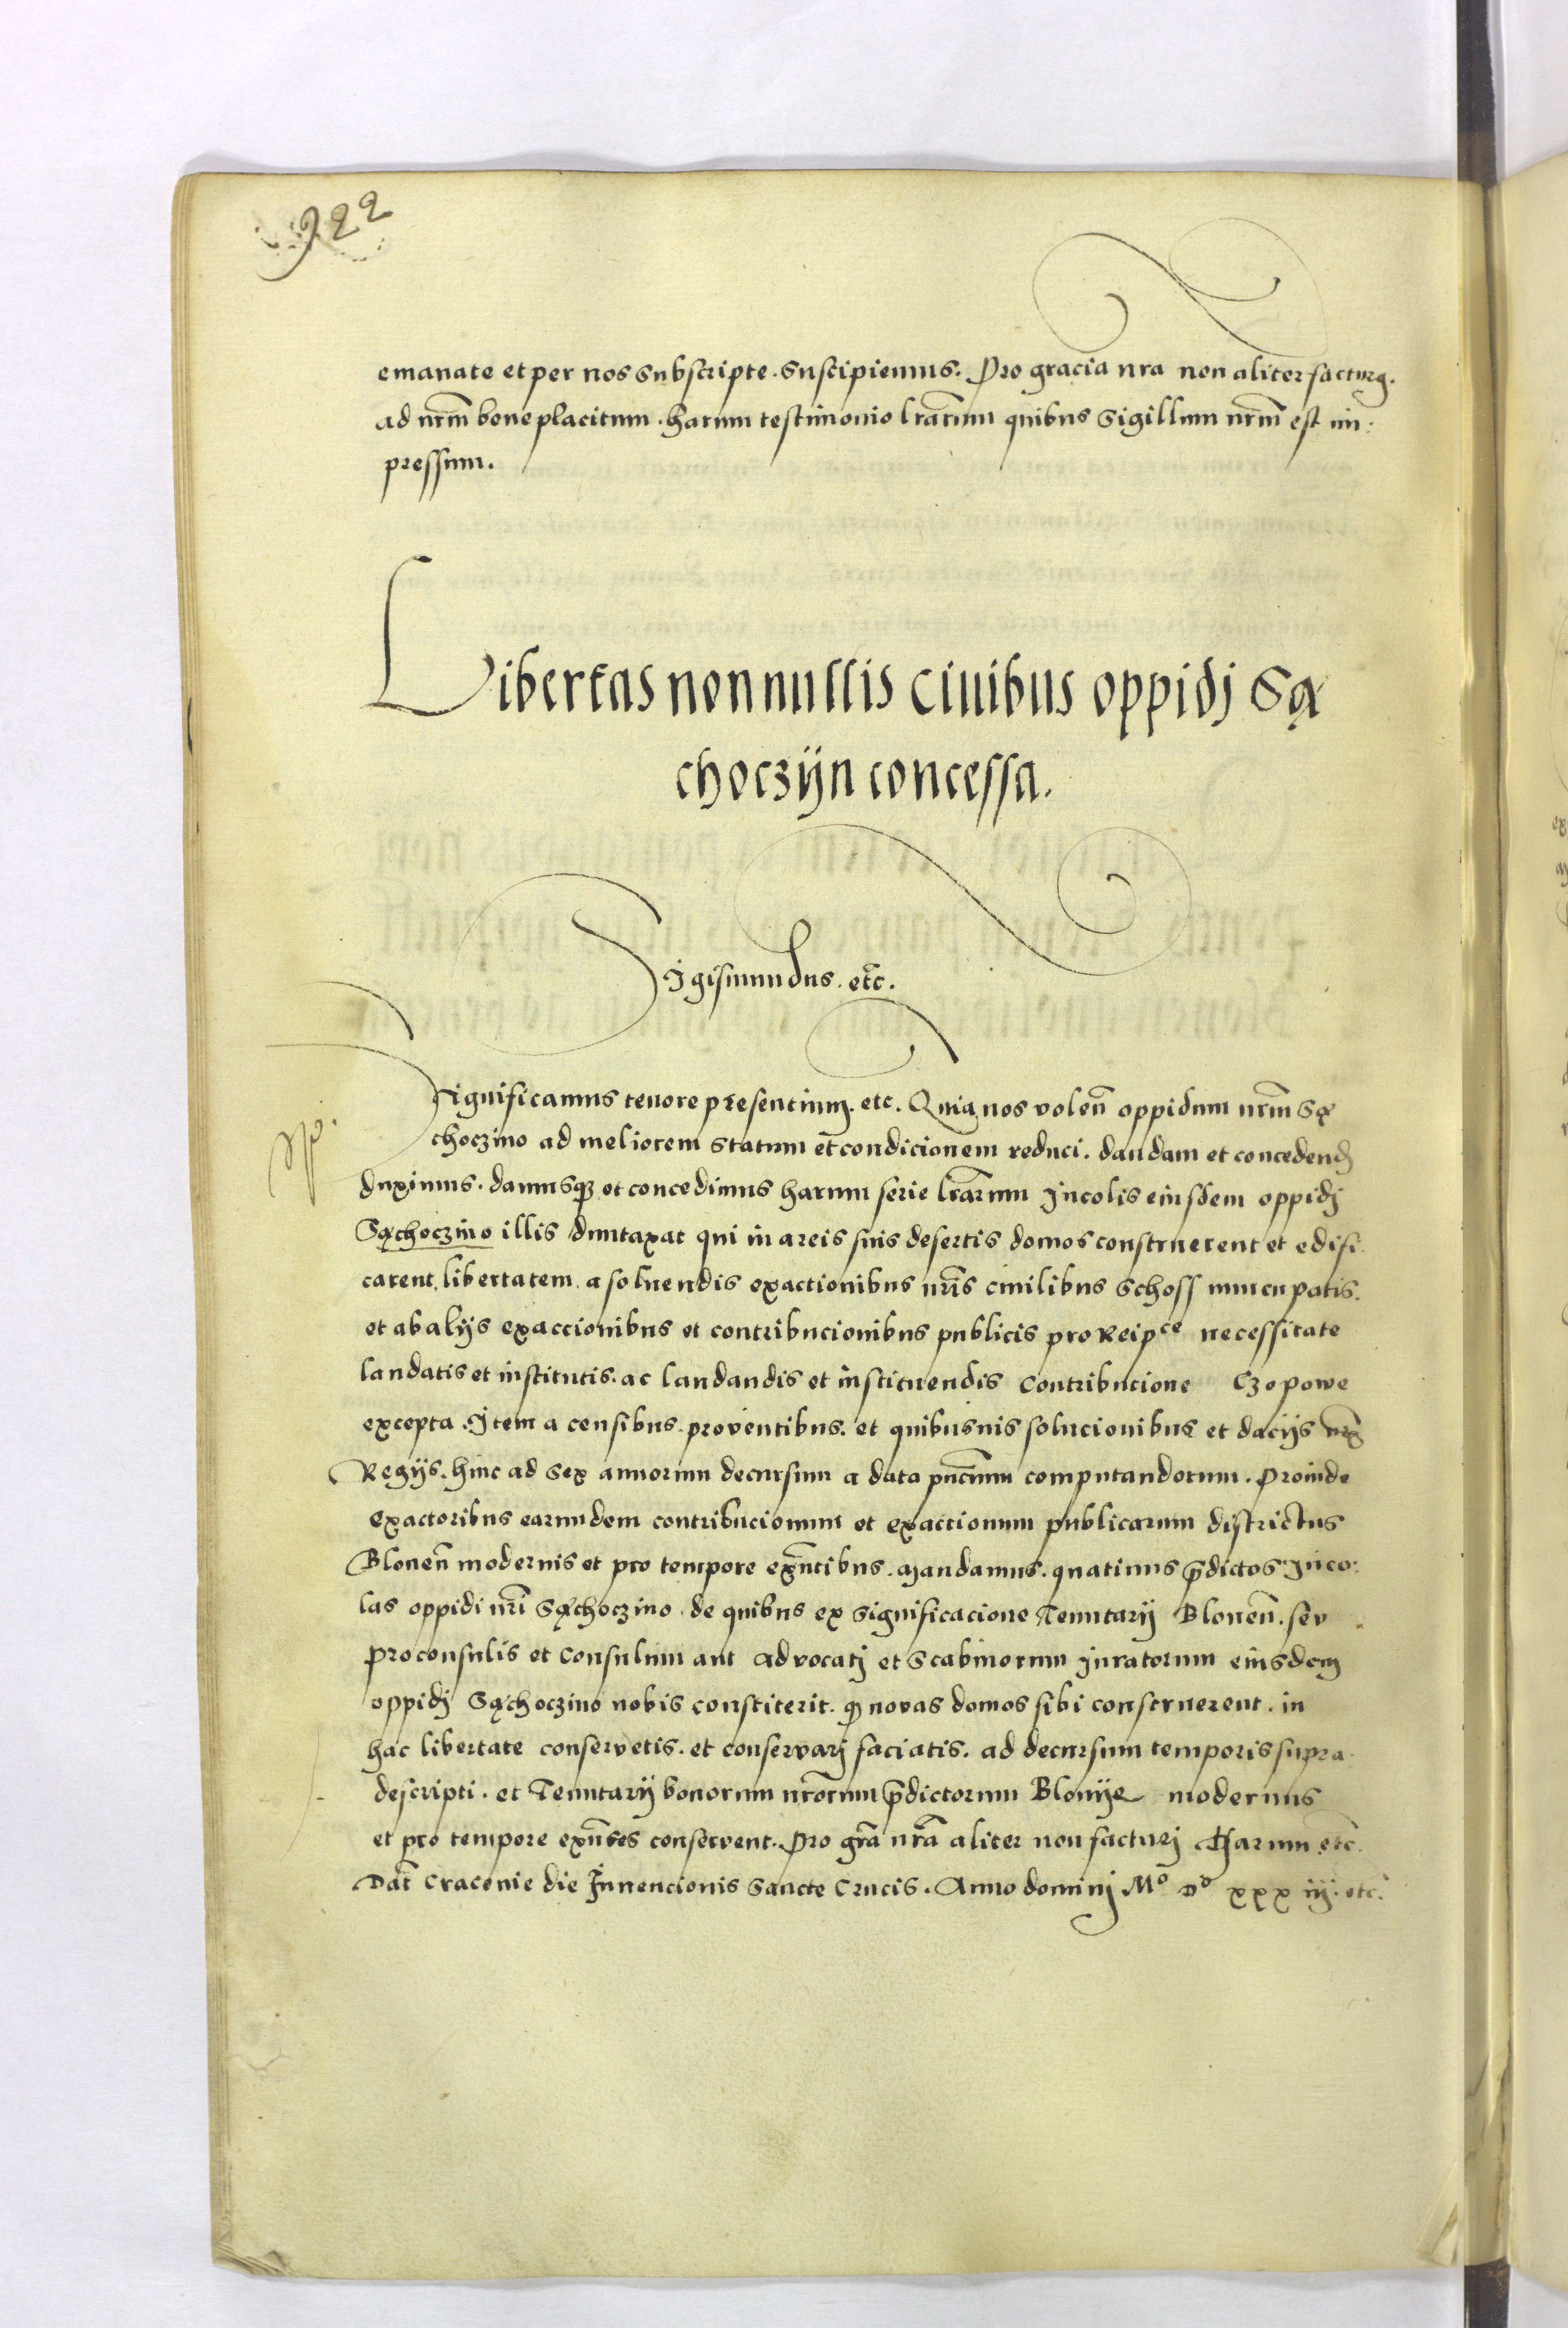 922
emanate et per nos subscripte. suscipiemus. Pro gracia nra non aliter facturq.
ad nrm beneplacitum. harum testimonio lrarum quibus Sigillum nrm est im:
pressum.
Libertas nonnullis ciuibus oppidj Są
choczijn concessa.
Sigismundus. etc.
Significamus tenore presentium. etc. Quia nos volen oppidum nrm Są
choczino ad meliorem statum et condicionem reduci. dandam et concedend
duximus. damusq et concedimus harum serie lrarum Incolis eiusdem oppidj
Sąchoczino illis duntaxat qui in areis suis desertis domos construerent et edifi
carent libertatem a soluendis exactionibus nris ciuilibus Schoss nuncupatis.
et ab alijs exaccionibus et contribucionibus publicis pro Reipce necessitate
laudatis et institutis. ac laudandis et instituendis contribucione Czopowe
excepta. Item a censibus. proventibus. et quibusuis solucionibus et dacijs nris
Regijs. hinc ad sex annorum decursum a data pncium computandorum. Proinde
exactoribus earundem contribucionum et exaccionum publicarum districtus
Blonen modernis et pro tempore exntibus. Mandamus. quatinus pdictos Inco:
las oppidi nri Sąchoczino de quibus ex significacione Tenutarij Blonen. seu
proconsulis et consulum aut advocatj et Scabinorum Iuratorum eiusdem
oppidj Sąchoczino nobis constiterit. q novas domos sibi construerent. in
hac libertate conservetis. et conservarj faciatis. ad decursum temporis supra
descripti. et Tenutarij bonorum nrorum pdictorum Blonije modernus
et pro tempore exntes conservent. Pro gra nra aliter non facturj Harum etc.
Dat Cracouie die Inuencionis Sancte Crucis. Anno dominj Mo Do xxx iij. etc.